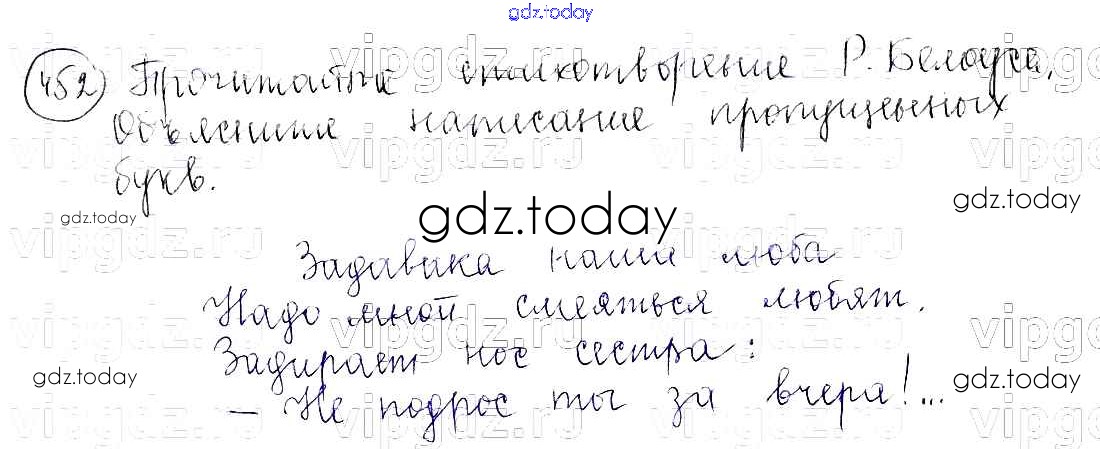 gdz.today
452 Прочитайте стихотворение Р. Белоуса,
Объясните написание пропущенных
букв.
gdz.today
gdz.today
gdz.today
Задавака наша Люба
Надо мной смеяться любят.
Задирает нос сестра:
gdz.today
gdz.today
– Не подрос ты за вчера!...